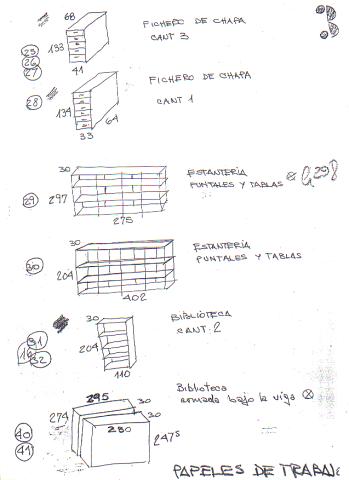 68
FICHERO DE CHAPA
CANT 3
133
25
26
27
41
FICHERO DE CHAPA
CANT 1
28
134
64
33
30
ESTANTERIA
PUNTALES Y TABLAS
29
297
275
30
ESTANTERIA
PUNTALES Y TABLAS
30
204
402
30
BIBLIOTECA
CANT. 2
31
16
32
204
110
295
30
Biblioteca
armada bajo la viga
274
30
280
247⁵
40
41
PAPELES DE TRABAJO